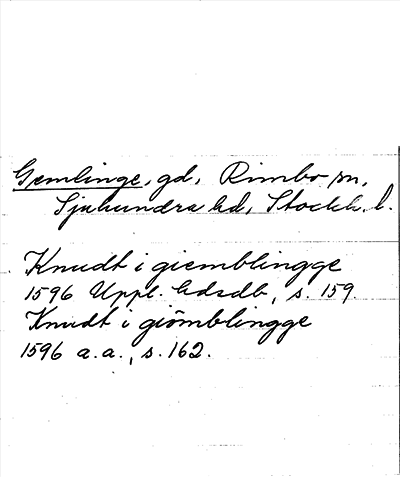 Gemlinge, gd, Rimbo sn,
Sjuhundra hd, Stockh. l.
Knudt i giemblingge
1596 Uppl. hdsdb, s. 159.
Knudt i giömblingge
1596 a.a., s. 162.